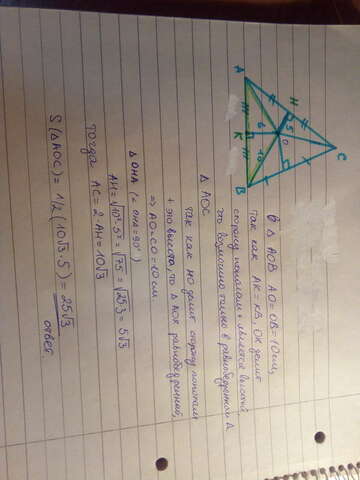 A
H
C
5
O
6
10
K
B
В Δ AOB AO = OB = 10 см,
так как AK = KB, OK делит
сторону пополам и является высотой,
что возможно только в равнобедренном Δ
Δ AOC
так как HO делит сторону пополам
+ это высота, то Δ AOX равнобедренный,
⇒ AO = CO = 10 см.
Δ OHA (∠ OHA = 90°)
AH = √10²-5² = √75 = √25·3 = 5√3
тогда AC = 2·AH = 10√3
S (Δ AOC) = 1/2 (10√3·5) = 25√3
ответ.